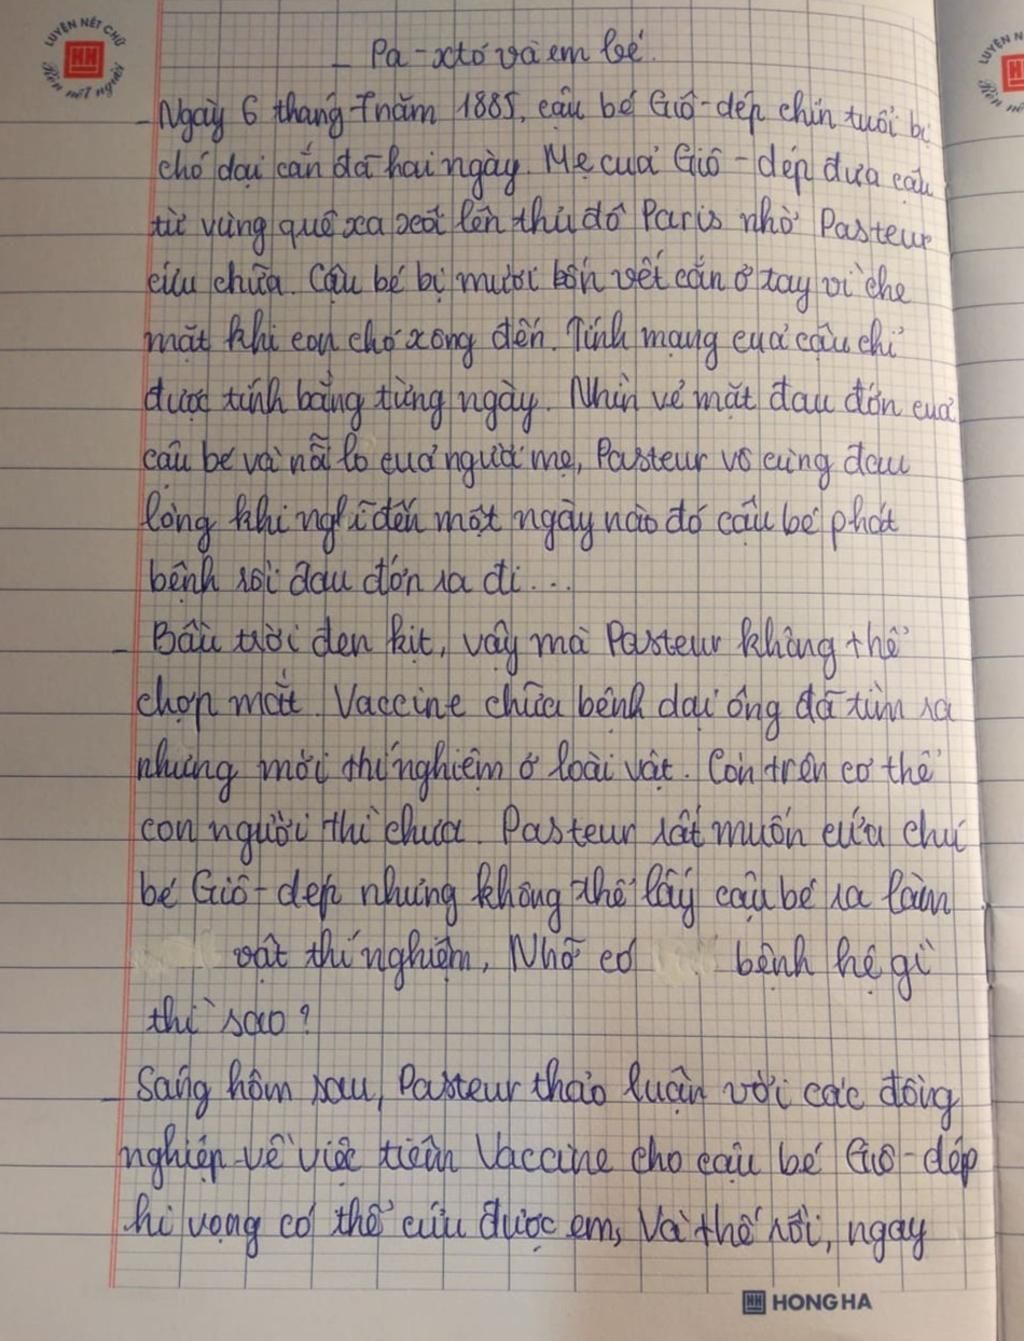 LUYỆN NÉT CHỮ
Rèn nết người
LUYỆN N
_ Pa-xtơ và em bé.
- Ngày 6 tháng 7 năm 1885, cậu bé Giô-dép chín tuổi bị
chó dại cắn đã hai ngày. Mẹ của Giô-dép đưa cậu
từ vùng quê xa xôi lên thủ đô Paris nhờ Pasteur
cứu chữa. Cậu bé bị mười bốn vết cắn ở tay vì che
mặt khi con chó xông đến. Tính mạng của cậu chỉ
được tính bằng từng ngày. Nhìn vẻ mặt đau đớn của
cậu bé và nỗi lo của người mẹ, Pasteur vô cùng đau
lòng khi nghĩ đến một ngày nào đó cậu bé phát
bệnh rồi đau đớn ra đi...
- Bầu trời đen kịt, vậy mà Pasteur không thể
chợp mắt. Vaccine chữa bệnh dại ông đã tìm ra
nhưng mới thí nghiệm ở loài vật. Còn trên cơ thể
con người thì chưa. Pasteur rất muốn cứu chú
bé Giô-dép nhưng không thể lấy cậu bé ra làm
vật thí nghiệm. Nhỡ có bệnh hệ gì
thì sao?
- Sáng hôm sau, Pasteur thảo luận với các đồng
nghiệp về việc tiêm Vaccine cho cậu bé Giô-dép
hi vọng có thể cứu được em, Và thế rồi, ngay
HH HONG HA